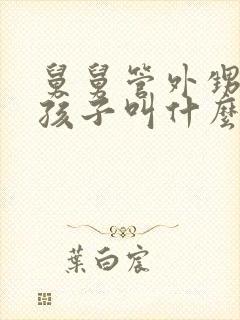 舅舅管外甥
孩子叫什麼
葉白宸